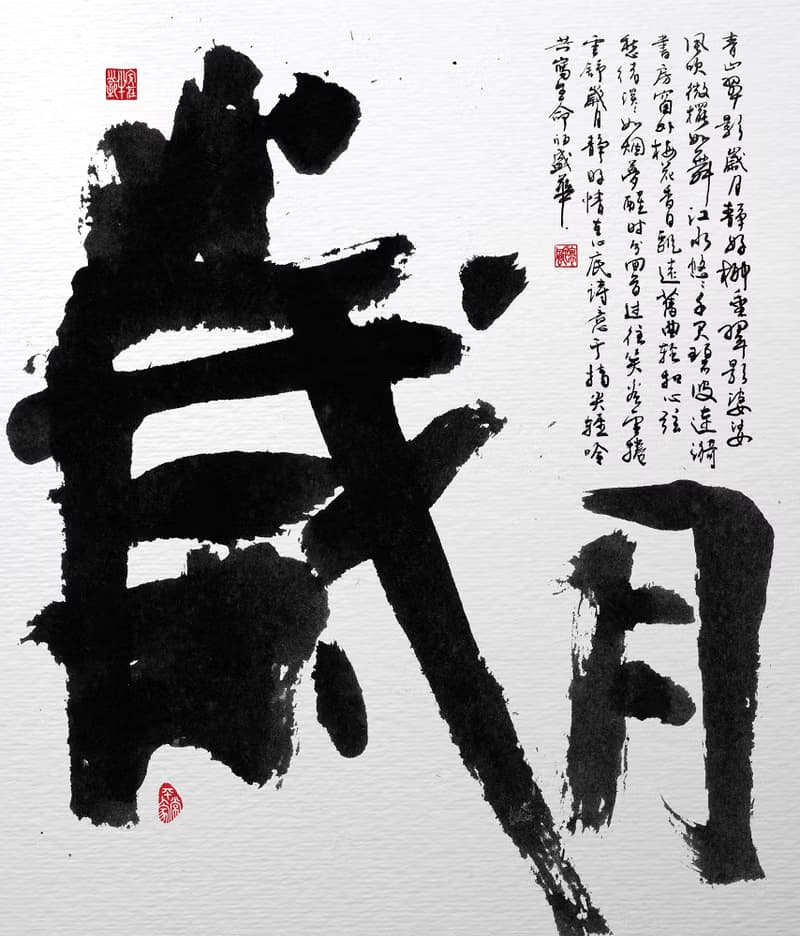 歲月
青山翠影歲月靜好柳垂翠影婆娑
風吹微擺如舞江水悠悠千里碧波連漪
書房窗外梅花香自飄遠舊曲輕和心弦
愁緒淡如烟夢醒時分回首過往笑看雲捲
雲舒歲月靜好情在心底詩意于指尖輕吟
共寫生命的盛華